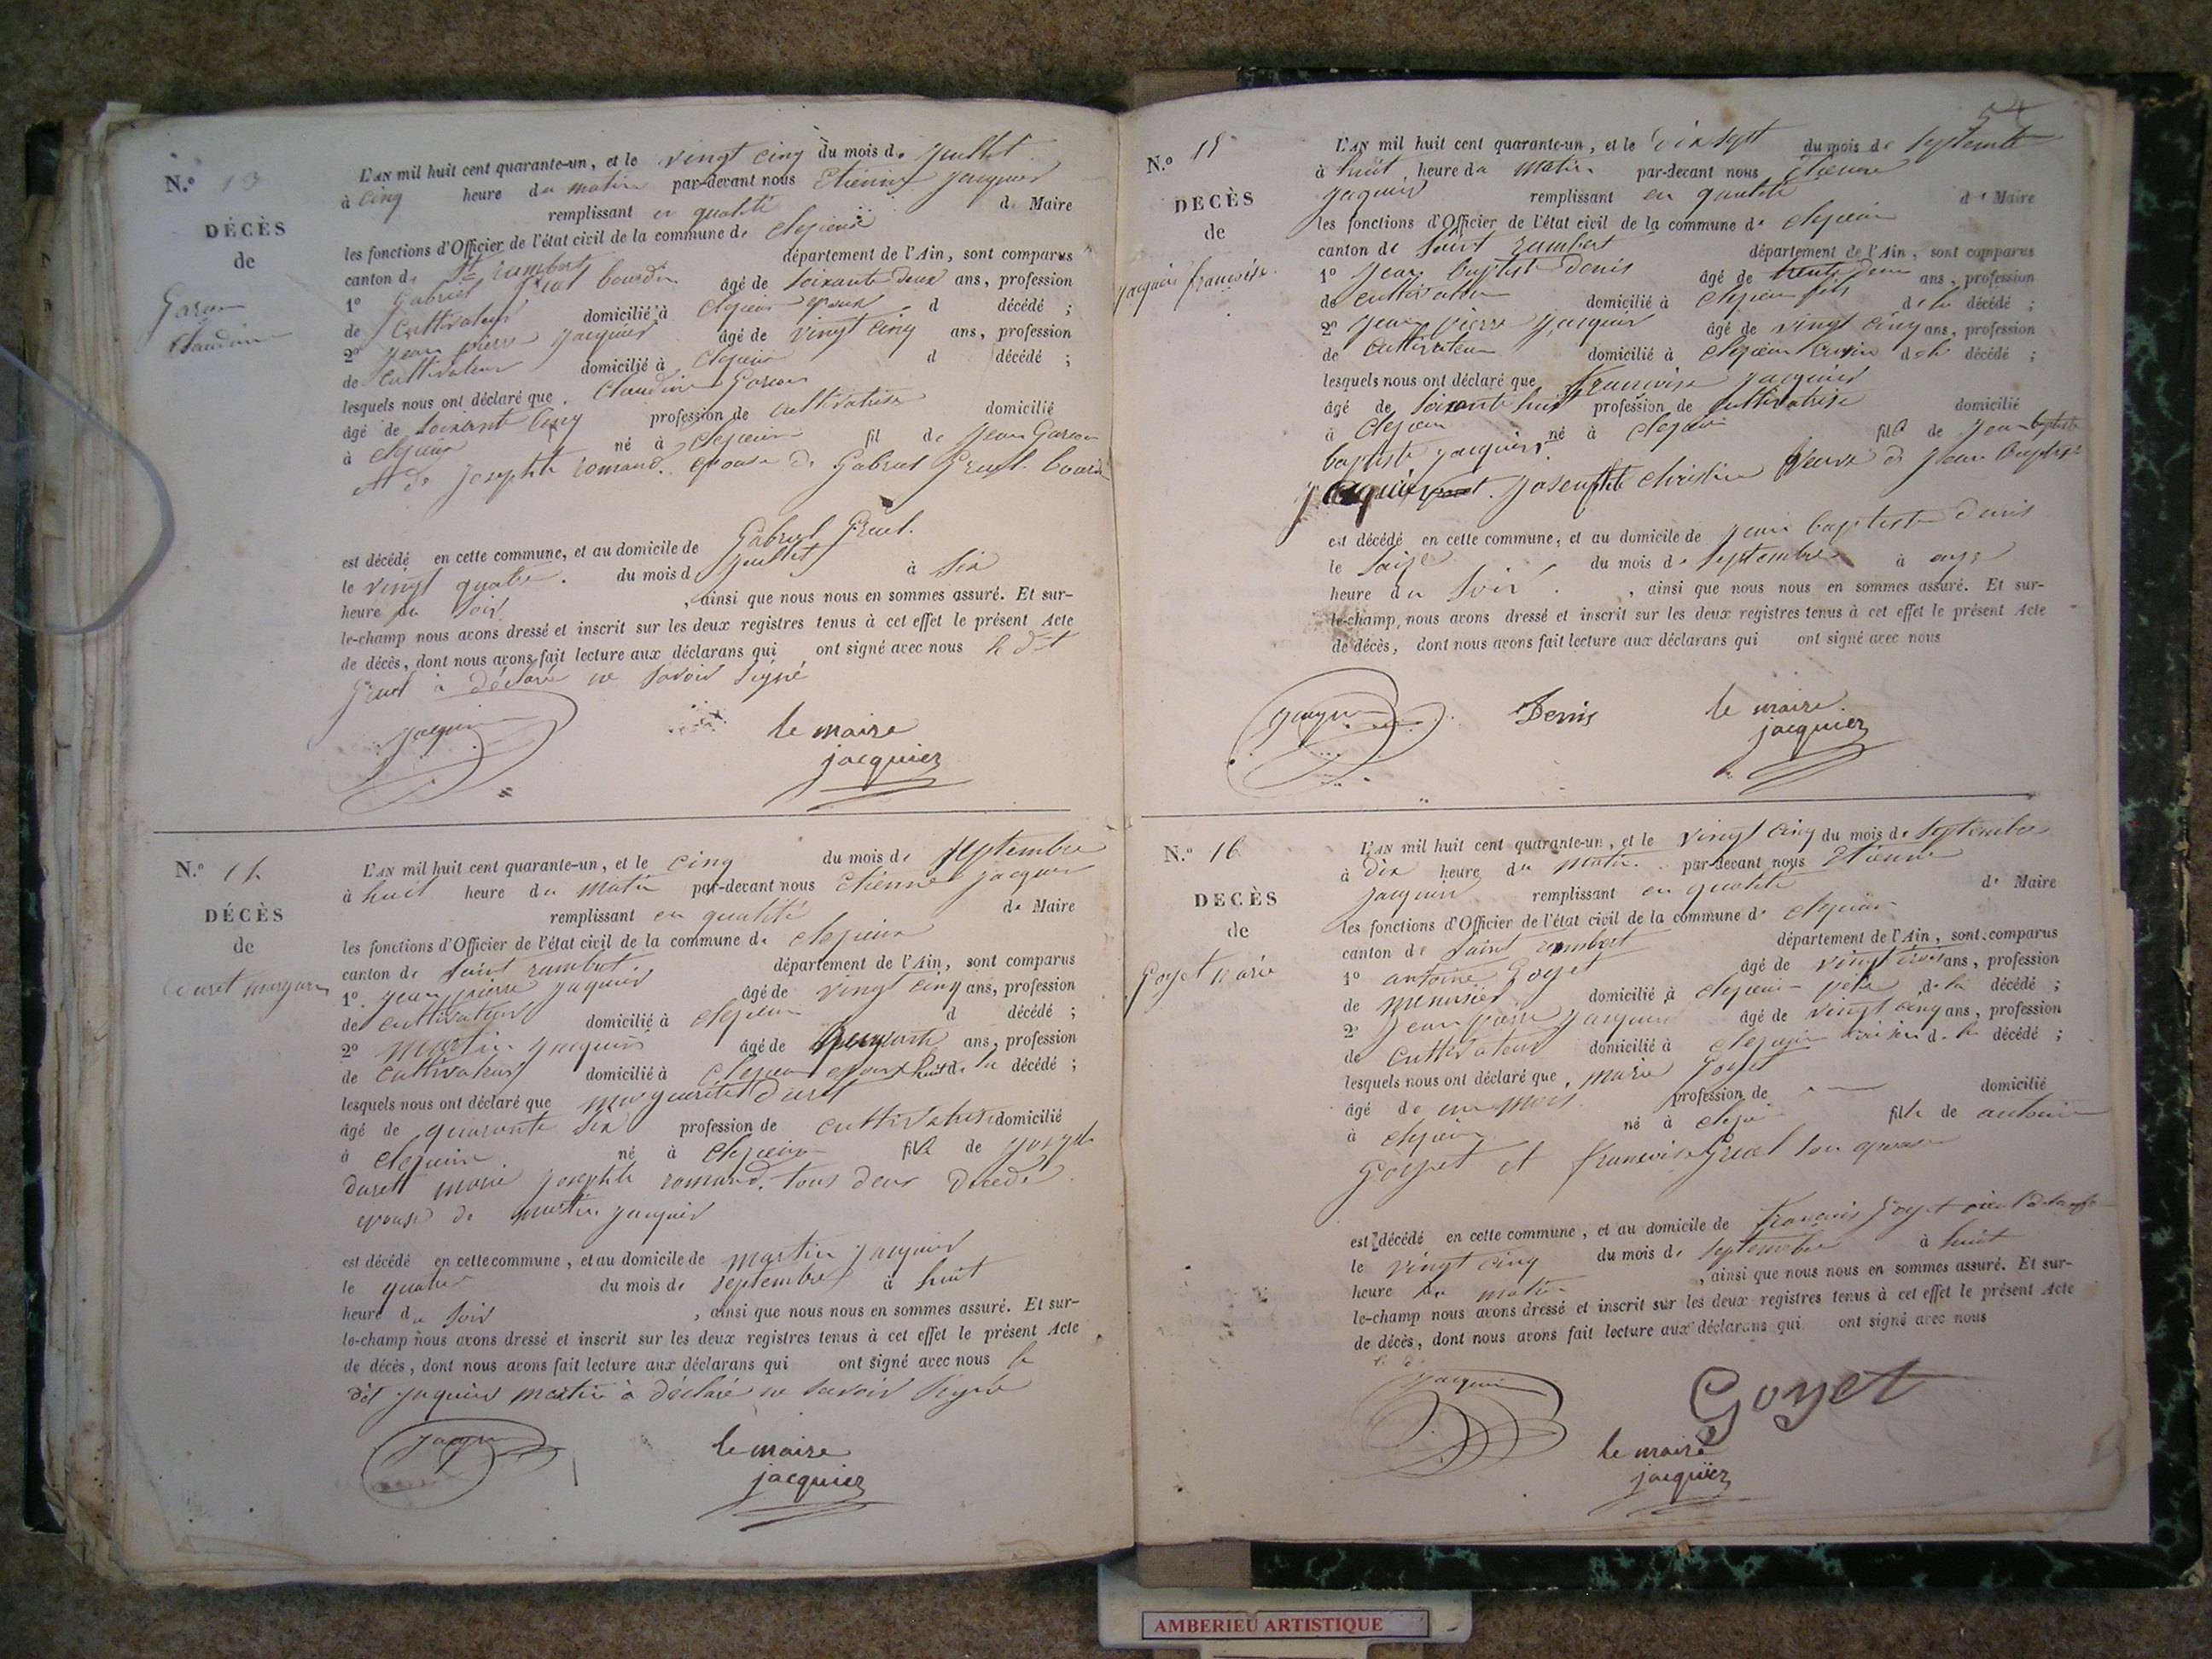 N.º 13
DÉCÈS
de
Garon
Claudine
L'AN mil huit cent quarante-un, et le vingt cinq du mois de Juillet
à cinq heure du matin par-devant nous Etienne Jacquier
remplissant en qualité de Maire
les fonctions d'Officier de l'état civil de la commune de
canton de St rambert département de l'Ain, sont comparus
1º Gabriel Gruel bourdin âgé de soixante deux ans, profession
de Cultivateur domicilié à époux d décédé ;
2º Jean pierre Jacquier âgé de vingt cinq ans, profession
de Cultivateur domicilié à d décédé ;
lesquels nous ont déclaré que Claudine Garon
âgé de soixante cinq profession de Cultivatrice domicilié
à né à fil de Jean Garon
et de Josephte romand. épouse de Gabriel Gruel bourdin
est décédé en cette commune, et au domicile de Gabriel Gruel.
le vingt quatre. du mois d Juillet à six
heure du soir , ainsi que nous nous en sommes assuré. Et sur-
le-champ nous avons dressé et inscrit sur les deux registres tenus à cet effet le présent Acte
de décès, dont nous avons fait lecture aux déclarans qui ont signé avec nous le dt
Gruel à déclaré ne savoir signé
Jacquier
le maire
jacquier
N.º 14
DÉCÈS
de
Duret
L'AN mil huit cent quarante-un, et le cinq du mois de septembre
à huit heure du matin par-devant nous etienne Jacquier
remplissant en qualité de Maire
les fonctions d'Officier de l'état civil de la commune de
canton de saint rambert. département de l'Ain, sont comparus
1º. Jean pierre Jaquier âgé de vingt cinq ans, profession
de cultivateur domicilié à d décédé ;
2º Martin Jacquier âgé de ans, profession
de Cultivateur domicilié à époux de la décédé ;
lesquels nous ont déclaré que Marguerite Duret
âgé de quarante six profession de cultivatrice domicilié
à né à fille de Joseph
duret marie josephte romand. tous deux Décédé
épouse de martin jacquier
est décédé en cette commune, et au domicile de Martin Jacquier
le quatre du mois de septembre à huit
heure du soir , ainsi que nous nous en sommes assuré. Et sur-
le-champ nous avons dressé et inscrit sur les deux registres tenus à cet effet le présent Acte
de décès, dont nous avons fait lecture aux déclarans qui ont signé avec nous le
dit jaquier martin à déclaré ne savoir signé
Jacquier
le maire
jacquier
N.º 15
DÉCÈS
de
jacquier françoise.
L'AN mil huit cent quarante-un, et le dix sept du mois de septembre
à huit heure du matin par-devant nous Etienne
Jaquier remplissant en qualité de Maire
les fonctions d'Officier de l'état civil de la commune de
canton de Saint rambert département de l'Ain, sont comparus
1º Jean baptiste Denis âgé de trente deux ans, profession
de cultivateur domicilié à fils de la décédé ;
2º Jean pierre Jacquier âgé de vingt cinq ans, profession
de cultivateur domicilié à de la décédé ;
lesquels nous ont déclaré que françoise jacquier
âgé de soixante huit profession de cultivatrice domicilié
à né à fille de Jean baptiste
baptiste jacquier
Josephte christin Veuve de Jean baptiste
est décédé en cette commune, et au domicile de jean baptiste denis
le seize du mois de septembre à onze
heure du soir. , ainsi que nous nous en sommes assuré. Et sur-
le-champ, nous avons dressé et inscrit sur les deux registres tenus à cet effet le présent Acte
de décès, dont nous avons fait lecture aux déclarans qui ont signé avec nous
Jacquier
Denis
le maire.
jacquier
N.º 16
DÉCÈS
de
Goyet Marie
L'AN mil huit cent quarante-un, et le vingt cinq du mois de septembre
à dix heure du matin par-devant nous Etienne
jacquier remplissant en qualité de Maire
les fonctions d'Officier de l'état civil de la commune de
canton de saint rambert département de l'Ain, sont comparus
1º antoine Goyet âgé de vingt trois ans, profession
de menusier domicilié à père de la décédé ;
2º Jean pierre jacquier âgé de vingt cinq ans, profession
de Cultivateur domicilié à voisin de la décédé ;
lesquels nous ont déclaré que marie Goyet
âgé de un mois profession de domicilié
à né à fille de antoine
Goyet et françoise Gruel son épouse
est décédé en cette commune, et au domicile de françois Goyet
le vingt cinq du mois de septembre à huit
heure du matin , ainsi que nous nous en sommes assuré. Et sur-
le-champ nous avons dressé et inscrit sur les deux registres tenus à cet effet le présent Acte
de décès, dont nous avons fait lecture aux déclarans qui ont signé avec nous
Jacquier
Goyet
le maire
jacquier
AMBERIEU ARTISTIQUE